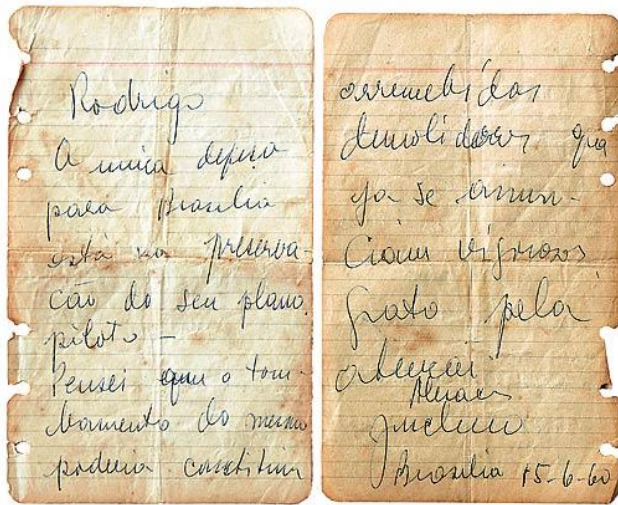 Rodrigo
A unica defesa
para Brasilia
está na preserva-
ção do seu plano
piloto –
Pensei que o tom-
bamento do mesmo
poderia constituir
arremetidas
demolidoras que
ja se anun-
ciam vigorosas
Grato pela
atenção
Abraços
Juscelino
Brasilia 15-6-60